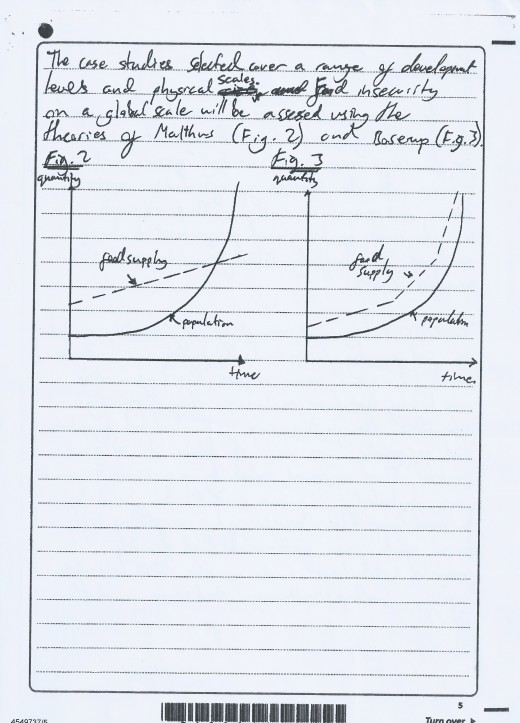 The case studies selected cover a range of development
levels and physical scales. and food insecurity
on a global scale will be assesed using the
theories of Malthus (Fig. 2) and Boserup (Fig.3).
Fig. 2
quantity
food supply
population
time
Fig. 3
quantity
food
supply
population
time
5
4549737/5
Turn over